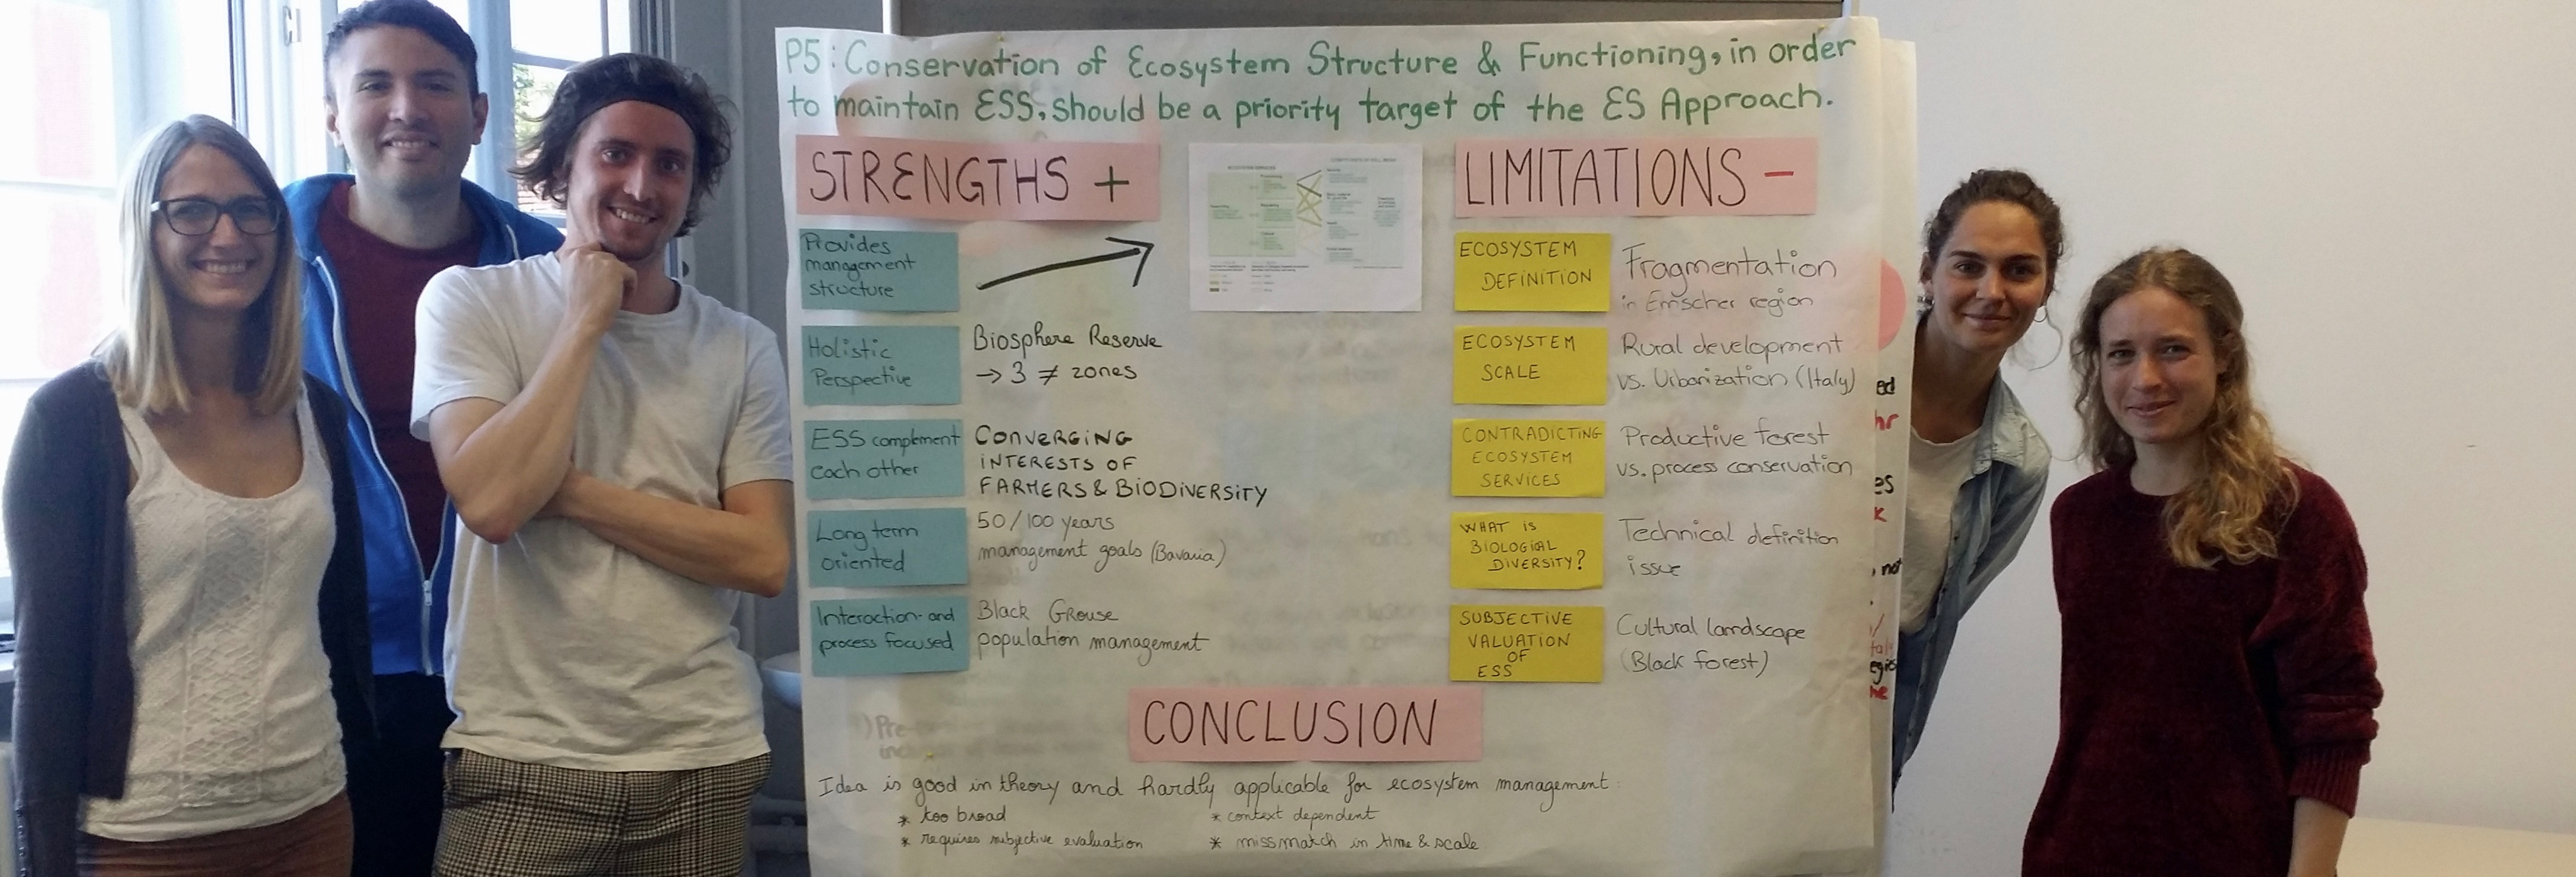 P5: Conservation of Ecosystem Structure & Functioning, in order
to maintain ESS, should be a priority target of the ES Approach.
STRENGTHS +
Provides
management
structure
Holistic
Perspective
Biosphere Reserve
→ 3 ≠ zones
ESS complement
each other
CONVERGING
INTERESTS OF
FARMERS & BIODIVERSITY
Long term
oriented
50/100 years
management goals (Bavaria)
Interaction- and
process focused
Black Grouse
population management
LIMITATIONS -
ECOSYSTEM
DEFINITION
Fragmentation
in Emscher region
ECOSYSTEM
SCALE
Rural development
vs. Urbanization (Italy)
CONTRADICTING
ECOSYSTEM
SERVICES
Productive forest
vs. process conservation
WHAT is
BIOLOGICAL
DIVERSITY?
Technical definition
issue
SUBJECTIVE
VALUATION
OF
ESS
Cultural landscape
(Black forest)
CONCLUSION
Idea is good in theory and hardly applicable for ecosystem management:
* too broad
* requires subjective evaluation
* context dependent
* missmatch in time & scale